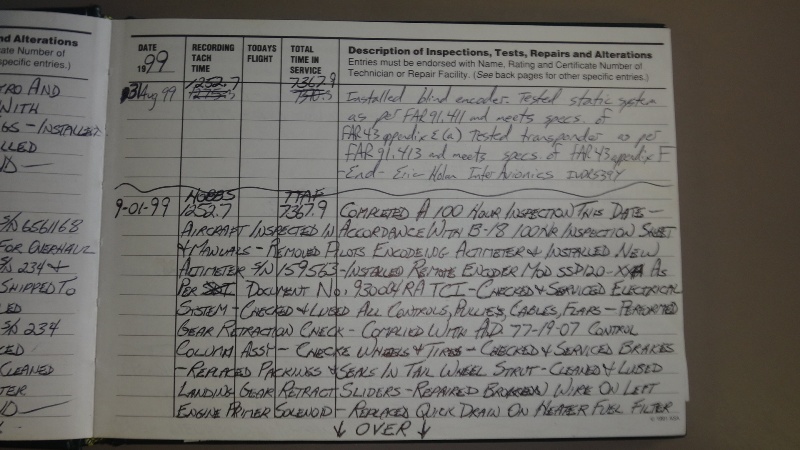 nd Alterations
cate Number of
entries.)
TRO AND
WITH
GS - INSTALLED
LLED
D -
S/N 6561168
FOR OVERHAUL
S/N 234 &
SHIPPED TO
LED
S/N 234
CED
CLEANED
TER
D -
DATE
1999
RECORDING
TACH
TIME
TODAYS
FLIGHT
TOTAL
TIME IN
SERVICE
Description of Inspections, Tests, Repairs and Alterations
Entries must be endorsed with Name, Rating and Certificate Number of
Technician or Repair Facility. (See back pages for other specific entries.)
31 Aug 99 1252.7 7367.9 Installed blind encoder. Tested static system
as per FAR 91.411 and meets specs. of
FAR 43 appendix E (a) Tested transponder as per
FAR 91.413 and meets specs. of FAR 43 appendix F
- End - Eric Nolan Inter Avionics
HOBBS TTAF
9-01-99 1252.7 7367.9 COMPLETED A 100 HOUR INSPECTION THIS DATE -
AIRCRAFT INSPECTED IN ACCORDANCE WITH B-18 100 HR INSPECTION SHEET
& MANUALS - REMOVED PILOTS ENCODEING ALTIMETER & INSTALLED NEW
ALTIMETER S/N 159563 - INSTALLED REMOTE ENCODER MOD SSD120 - AS
PER DOCUMENT NO. 930004 RA TCI - CHECKED & SERVICED ELECTRICAL
SYSTEM - CHECKED & LUBED ALL CONTROLS, PULLIES, CABLES, FLAPS - PERFORMED
GEAR RETRACTION CHECK - COMPLIED WITH A.D. 77-19-07 CONTROL
COLUMN ASSY - CHECKE WHEELS & TIRES - CHECKED & SERVICED BRAKES
- REPLACED PACKINGS & SEALS IN TAIL WHEEL STRUT - CLEANED & LUBED
LANDING GEAR RETRACT SLIDERS - REPAIRED BROKEN WIRE ON LEFT
ENGINE PRIMER SOLENOID - REPLACED QUICK DRAIN ON HEATER FUEL FILTER
↓ OVER ↓